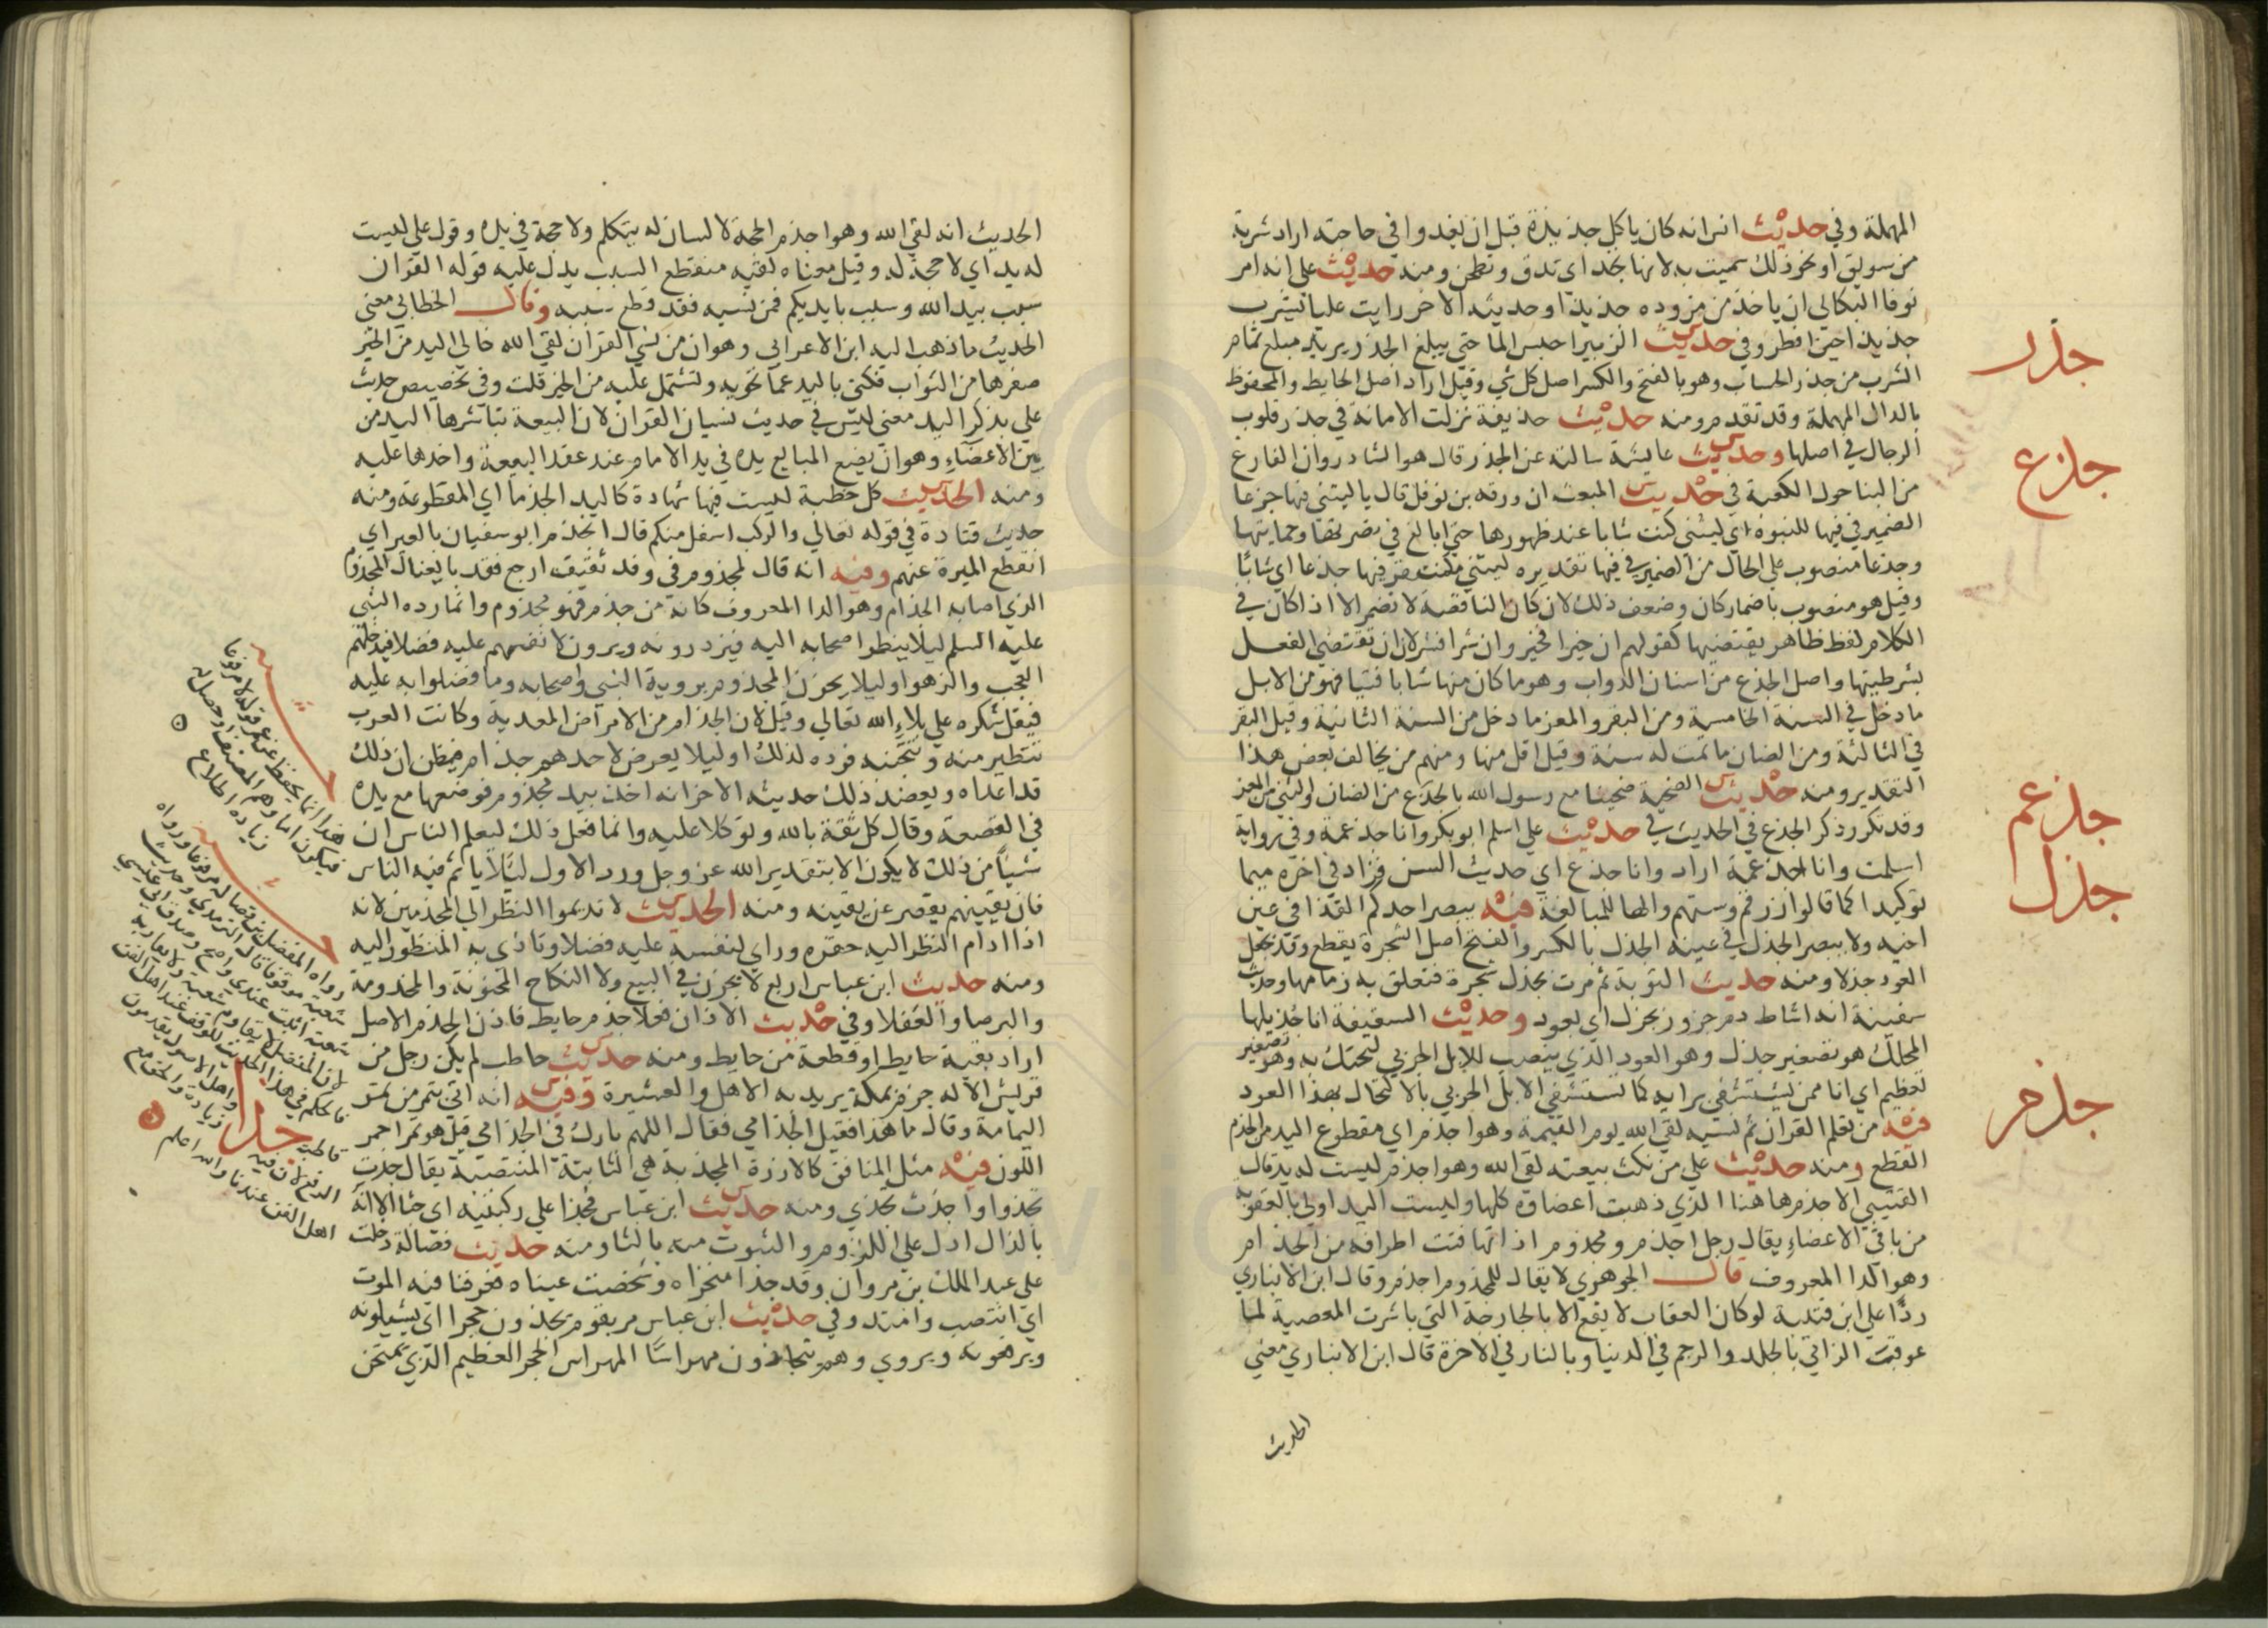 المهملة وفي حديث انس انه كان ياكل جذيذة قبل ان يغدوا في حاجته اراد شربة
من سويق او نحو ذلك سميت به لانها تجذ اي تدق وتطحن ومنه حديث علي انه امر
نوفا البكالي ان ياخذ من مزوده جذيذا وحديثه الاخر رايت عليا يشرب
جذيذا حين افطر وفي حديث الزبير احبس الما حتي يبلغ الجذر يريد مبلغ تمام
الشرب من جذر الحساب وهو بالفتح والكسر اصل كل شي وقيل اراد اصل الحايط والمحفوظ
بالدال المهملة وقد تقدم ومنه حديث حذيفة نزلت الامانة في جذر قلوب
الرجال في اصلها وحديث عايشة سالته عن الجذر قال هو الشاذروان الفارغ
من البنا حول الكعبة في حديث المبعث ان ورقه بن نوفل قال يا ليتني فيها جزعا
الضمير في فيها للنبوة اي ليتني كنت شابا عند ظهورها حتي ابالغ في نصرتها وحمايتها
وجذعا منصوب علي الحال من الضمير في فيها تقديره ليتني مستقر فيها جذعا اي شابا
وقيل هو منصوب باضمار كان وضعف ذلك لان كان الناقصة لا تضمر الا اذا كان في
الكلام لفظ ظاهر يقتضيها كقولهم ان خيرا فخير وان شرا فشر لان ان تقتضي الفعل
بشرطيتها واصل الجذع من اسنان الدواب وهو ما كان منها شابا فتيا فهو من الابل
ما دخل في السنة الخامسة ومن البقر والمعز ما دخل من السنة الثانية وقيل البقر
في الثالثة ومن الضان ما تمت له سنة وقيل اقل منها ومنهم من يخالف بعض هذا
التقدير ومنه حديث الضحية ضحينا مع رسول الله بالجذع من الضان والثني من المعز
وقد تكرر ذكر الجذع في الحديث في حديث علي اسلم ابو بكر وانا جذعمة وفي رواية
اسلمت وانا جذعمة اراد وانا جذع اي حديث السن فزاد في اخره ميما
توكيدا كما قالوا زرقم وستهم والها للمبالغة فيه يبصر احدكم القذا في عين
اخيه ولا يبصر الجذل في عينه الجذل بالكسر والفتح اصل الشجرة يقطع وقد يجعل
العود جذلا ومنه حديث التوبة ثم مرت بجذل شجرة فتعلق به زمامها وحديث
سفينة انه اشاط دم جزور بجزل اي بعود وحديث السقيفة انا جذيلها
المحكك هو تصغير جذل وهو العود الذي ينصب للابل الجربي لتحتك به وهو تصغير
تعظيم اي انا ممن يستشفي برايه كما تستشفي الابل الجربي بالاحتكاك بهذا العود
فيه من تعلم القران ثم نسيه لقي الله يوم القيمة وهو اجذم اي مقطوع اليد من الجذم
القطع ومنه حديث علي من نكث بيعته لقي الله وهو اجذم ليست له يد قال
القتيبي الاجذم هاهنا الذي ذهبت اعضاوه كلها وليست اليد اولي بالعقوبة
من باقي الاعضاء يقال رجل اجذم ومجذوم اذا تهافتت اطرافه من الجذام
وهو الدا المعروف قال الجوهري لا يقال للمجذوم اجذم وقال ابن الانباري
ردا علي ابن قتيبة لو كان العقاب لا يقع الا بالجارحة التي باشرت المعصية لما
عوقب الزاني بالجلد والرجم في الدنيا وبالنار في الاخرة قال ابن الانباري معني
الحديث
جذر
جذع
جذعم
جذل
جذم
الحديث انه لقي الله وهو اجذم الحجة لا لسان له يتكلم ولا حجة في يده وقول علي ليست
له يد اي لا حجة له وقيل معناه لقيه منقطع السبب يدل عليه قوله القران
سبب بيد الله وسبب بايديكم فمن نسيه فقد قطع سببه وقال الخطابي معني
الحديث ما ذهب اليه ابن الاعرابي وهو ان من نسي القران لقي الله خالي اليد من الخير
صفرها من الثواب فكني باليد عما تحويه وتشتمل عليه من الخير قلت وفي تخصيص حديث
علي بذكر اليد معني ليس في حديث نسيان القران لان البيعة تباشرها اليد من
بين الاعضاء وهو ان يضع المبايع يده في يد الامام عند عقد البيعة واخذها عليه
ومنه الحديث كل خطبة ليست فيها شهادة كاليد الجذما اي المقطوعة ومنه
حديث قتادة في قوله تعالي والركب اسفل منكم قال انجذم ابو سفيان بالعير اي
انقطع الميرة عنهم وفيه انه قال لمجذوم في وفد ثقيف ارجع فقد بايعناك المجذوم
الذي اصابه الجذام وهو الدا المعروف كانه من جذم فهو مجذوم وانما رده النبي
عليه السلم ليلا ينظر اصحابه اليه فيزدرونه ويرون لانفسهم عليه فضلا فيدخلهم
العجب والزهو او ليلا يحزن المجذوم بروية النبي واصحابه وما فضلوا به عليه
فيقل شكره علي بلاء الله تعالي وقيل لان الجذام من الامراض المعدية وكانت العرب
تتطير منه وتتجنبه فرده لذلك او ليلا يعرض لاحدهم جذام فيظن ان ذلك
قد اعداه ويعضد ذلك حديثه الاخر انه اخذ بيد مجذوم فوضعها مع يده
في القصعة وقال كل ثقة بالله وتوكلا عليه وانما فعل ذلك ليعلم الناس ان
شيئا من ذلك لا يكون الا بتقدير الله عز وجل ورد الاول ليلا ياثم فيه الناس
فان يقينهم يقصر عن يقينه ومنه الحديث لا تديموا النظر الي المجذمين لانه
اذا ادام النظر اليه حقره وراي لنفسه عليه فضلا وتاذي به المنظور اليه
ومنه حديث ابن عباس اربع لا يجزن في البيع ولا النكاح المجنونة والمجذومة
والبرصا والعفلا وفي حديث الاذان فعلا جذم حايط فاذن الجذم الاصل
اراد بقية حايط او قطعة من حايط ومنه حديث حاطب لم يكن رجل من
قريش الا له جزم بمكة يريد به الاهل والعشيرة وفيه انه اتي بتمر من تمر
اليمامة وقال ما هذا فقيل الجذامي فقال اللهم بارك في الجذامي قيل هو تمر احمر
اللون فيه مثل المنافق كالارزة المجذية هي الثابتة المنتصبة يقال جذت
تجذوا واجذت تجذي ومنه حديث ابن عباس فجذا علي ركبتيه اي جثا الا انه
بالذال ادل علي اللزوم والثبوت منه بالثا ومنه حديث فضالة دخلت
علي عبد الملك بن مروان وقد جذا منخراه وشخصت عيناه فعرفنا فيه الموت
اي انتصب وامتد وفي حديث ابن عباس مر بقوم يجذون حجرا اي يشيلونه
ويرفعونه ويروي وهم يتجاذون مهراسا المهراس الحجر العظيم الذي تمتحن
هذا انما يحفظ عن عمر قوله لا مرفوعا
فيكون اما وهم المصنف او حصل له
زيادة اطلاع
رواه المفضل بن فضاله مرفوعا ورواه
شعبة موقوفا قال الترمذي وحديث
شعبة اثبت عندي واصح
جذا
اهل الفن عندنا والله اعلم